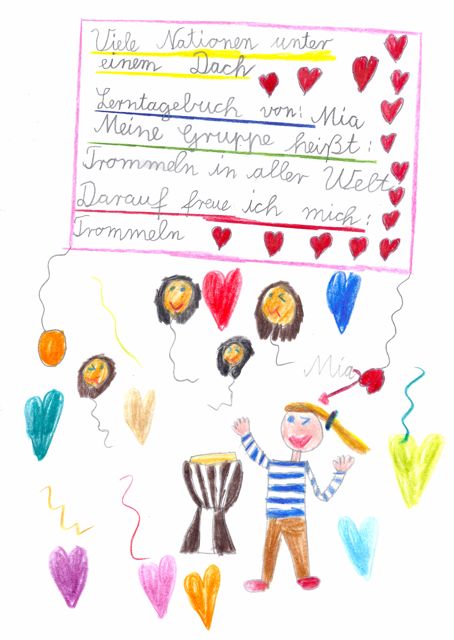 Viele Nationen unter
einem Dach
Lerntagebuch von: Mia
Meine Gruppe heißt:
Trommeln in aller Welt
Darauf freue ich mich:
Trommeln
Mia